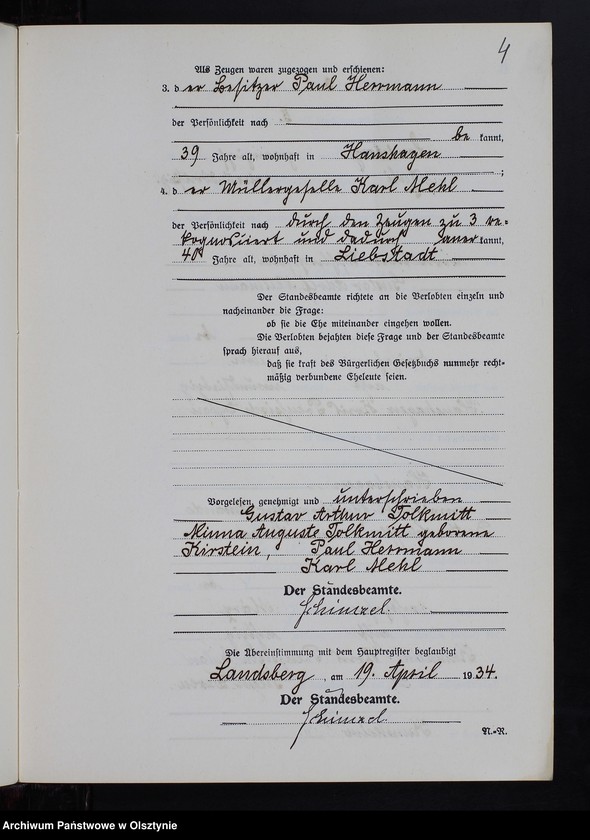 4
Als Zeugen waren zugezogen und erschienen:
3. der Besitzer Paul Herrmann
der Persönlichkeit nach
be kannt,
39 Jahre alt, wohnhaft in Hanshagen
;
4. der Müllergeselle Karl Mehl
der Persönlichkeit nach durch den Zeugen zu 3 re=
kognosziert und dadurch aner kannt,
40 Jahre alt, wohnhaft in Liebstadt
Der Standesbeamte richtete an die Verlobten einzeln und
nacheinander die Frage:
ob sie die Ehe miteinander eingehen wollen.
Die Verlobten bejahten diese Frage und der Standesbeamte
sprach hierauf aus,
daß sie kraft des Bürgerlichen Gesetzbuchs nunmehr recht-
mäßig verbundene Eheleute seien.
Vorgelesen, genehmigt und unterschrieben
Gustav Arthur Tolkmitt
Minna Auguste Tolkmitt geborene
Kirstein, Paul Herrmann
Karl Mehl
Der Standesbeamte.
Schimzel.
Die Übereinstimmung mit dem Hauptregister beglaubigt
Landsberg, am 19. April 1934.
Der Standesbeamte.
Schimzel.
N.=R.
Archiwum Państwowe w Olsztynie